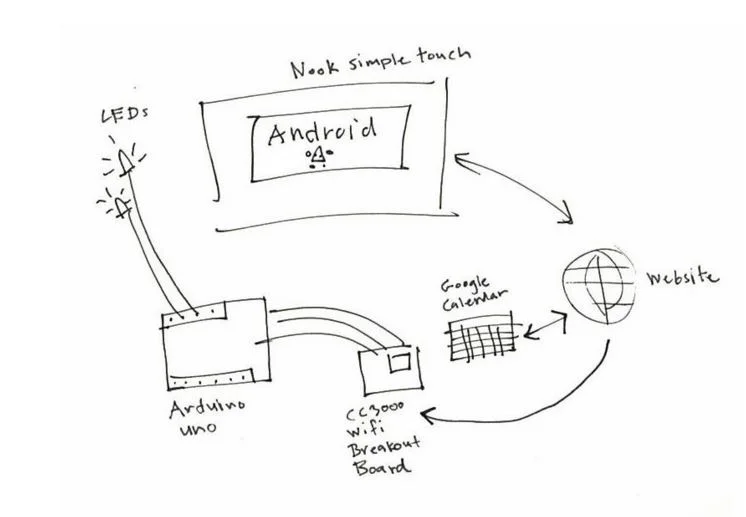 Nook simple touch
LEDs
Android
Google
Calendar
Website
Arduino
uno
CC3000
wifi
Breakout
Board